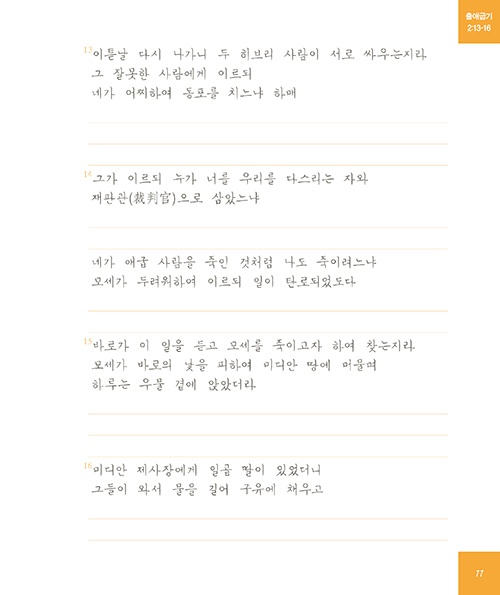 출애굽기
2:13-16
13 이튿날 다시 나가니 두 히브리 사람이 서로 싸우는지라
그 잘못한 사람에게 이르되
네가 어찌하여 동포를 치느냐 하매
14 그가 이르되 누가 너를 우리를 다스리는 자와
재판관(裁判官)으로 삼았느냐
네가 애굽 사람을 죽인 것처럼 나도 죽이려느냐
모세가 두려워하여 이르되 일이 탄로되었도다
15 바로가 이 일을 듣고 모세를 죽이고자 하여 찾는지라
모세가 바로의 낯을 피하여 미디안 땅에 머물며
하루는 우물 곁에 앉았더라
16 미디안 제사장에게 일곱 딸이 있었더니
그들이 와서 물을 길어 구유에 채우고
11